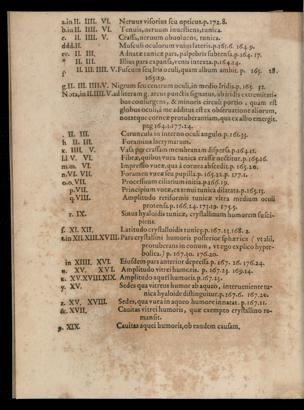 a.in II. IIII. VI. Neruus visorius seu opticus.p.172.8.
b. II. IIII. VI. Tenuis, neruum inuestiens, tunica.
c. II. IIII. V. Crassa, neruum obuoluens, tunica.
ddd.II. Musculi oculorum vuius lateris.p.161.6. 164.9.
ee. II. III. Adnatæ tunicæ pars, palpebris subtensa.p.164.17.
* II. III. Illius pars expansa, venis intexta.p.164.24.
f II. III. IIII. V. Fuscum seu Iris oculi, quam album ambit. p. 165. 28.
165.19.
g.II. III. IIII. V. Nigrum seu centrum oculi, in medio Iridis.p. 165. 32.
Nota, in II. IIII. V. ad literam g. arcus punctis signatus, ab iridis extremitatibus
consurgens, & minoris circuli portio, quam est
globus oculi, à me additus est ex obseruatione aliorum,
notatque corneæ protuberantiam, qua ex albo emergit.
pag.164.1.177.24.
. II. III. Caruncula in interno oculi angulo.p.161.33.
h II. III. Foramina lacrymarum.
e. IIII. V. Vasa per crassam membranam dispersa.p.164.11.
l.l V. VI. Fibræ, quibus vuea tunica crassæ nectitur.p.165.16.
m. VI. Impressio vueæ, qua à cornea abscedit.p.165.20.
n.VI. VII. Foramen vueæ seu pupilla.p.165.32.p.177.1.
o.o.VII. Processuum ciliarium initia.p.166.13.
p.VII. Principium vueæ, ex tenui tunica dilatata.p.165.13.
q.VIII. Amplitudo retiformis tunicæ vitra medium oculi
protensa.p.166.24.171.19.175.5.
r. IX. Sinus hyaloidis tunicæ, crystallinum humorem suscipiens.
f. XI. XII. Latitudo crystalloidis tunicæ.p.167.13.168.2.
t.in XII. XIII. XVIII. Pars crystallini humoris posterior sphærica ( vt alii,
protuberans in conum, vt ego explico hyperbolica.)
p.167.10. 176.20.
in XIIII. XVI. Eiusdem pars anterior depressa p.167.26.176.24.
u. XV. XVI. Amplitudo vitrei humoris. p.167.23. 169.14.
x. XV.XVIII.XIX. Amplitudo aquei humoris.p.167.13.
y. XV. Sedes qua vitreus humor ab aqueo, interueniente tunica
hyaloide distinguitur.p.167.6. 167.20.
z. XV. XVIII. Sedes, qua vuea in aqueo humore innatat. p.167.11.
&. XVII. Cauitas vitrei humoris, quæ exempto crystallino remansit.
p. XIX. Cauitas aquei humoris, ob eandem causam.